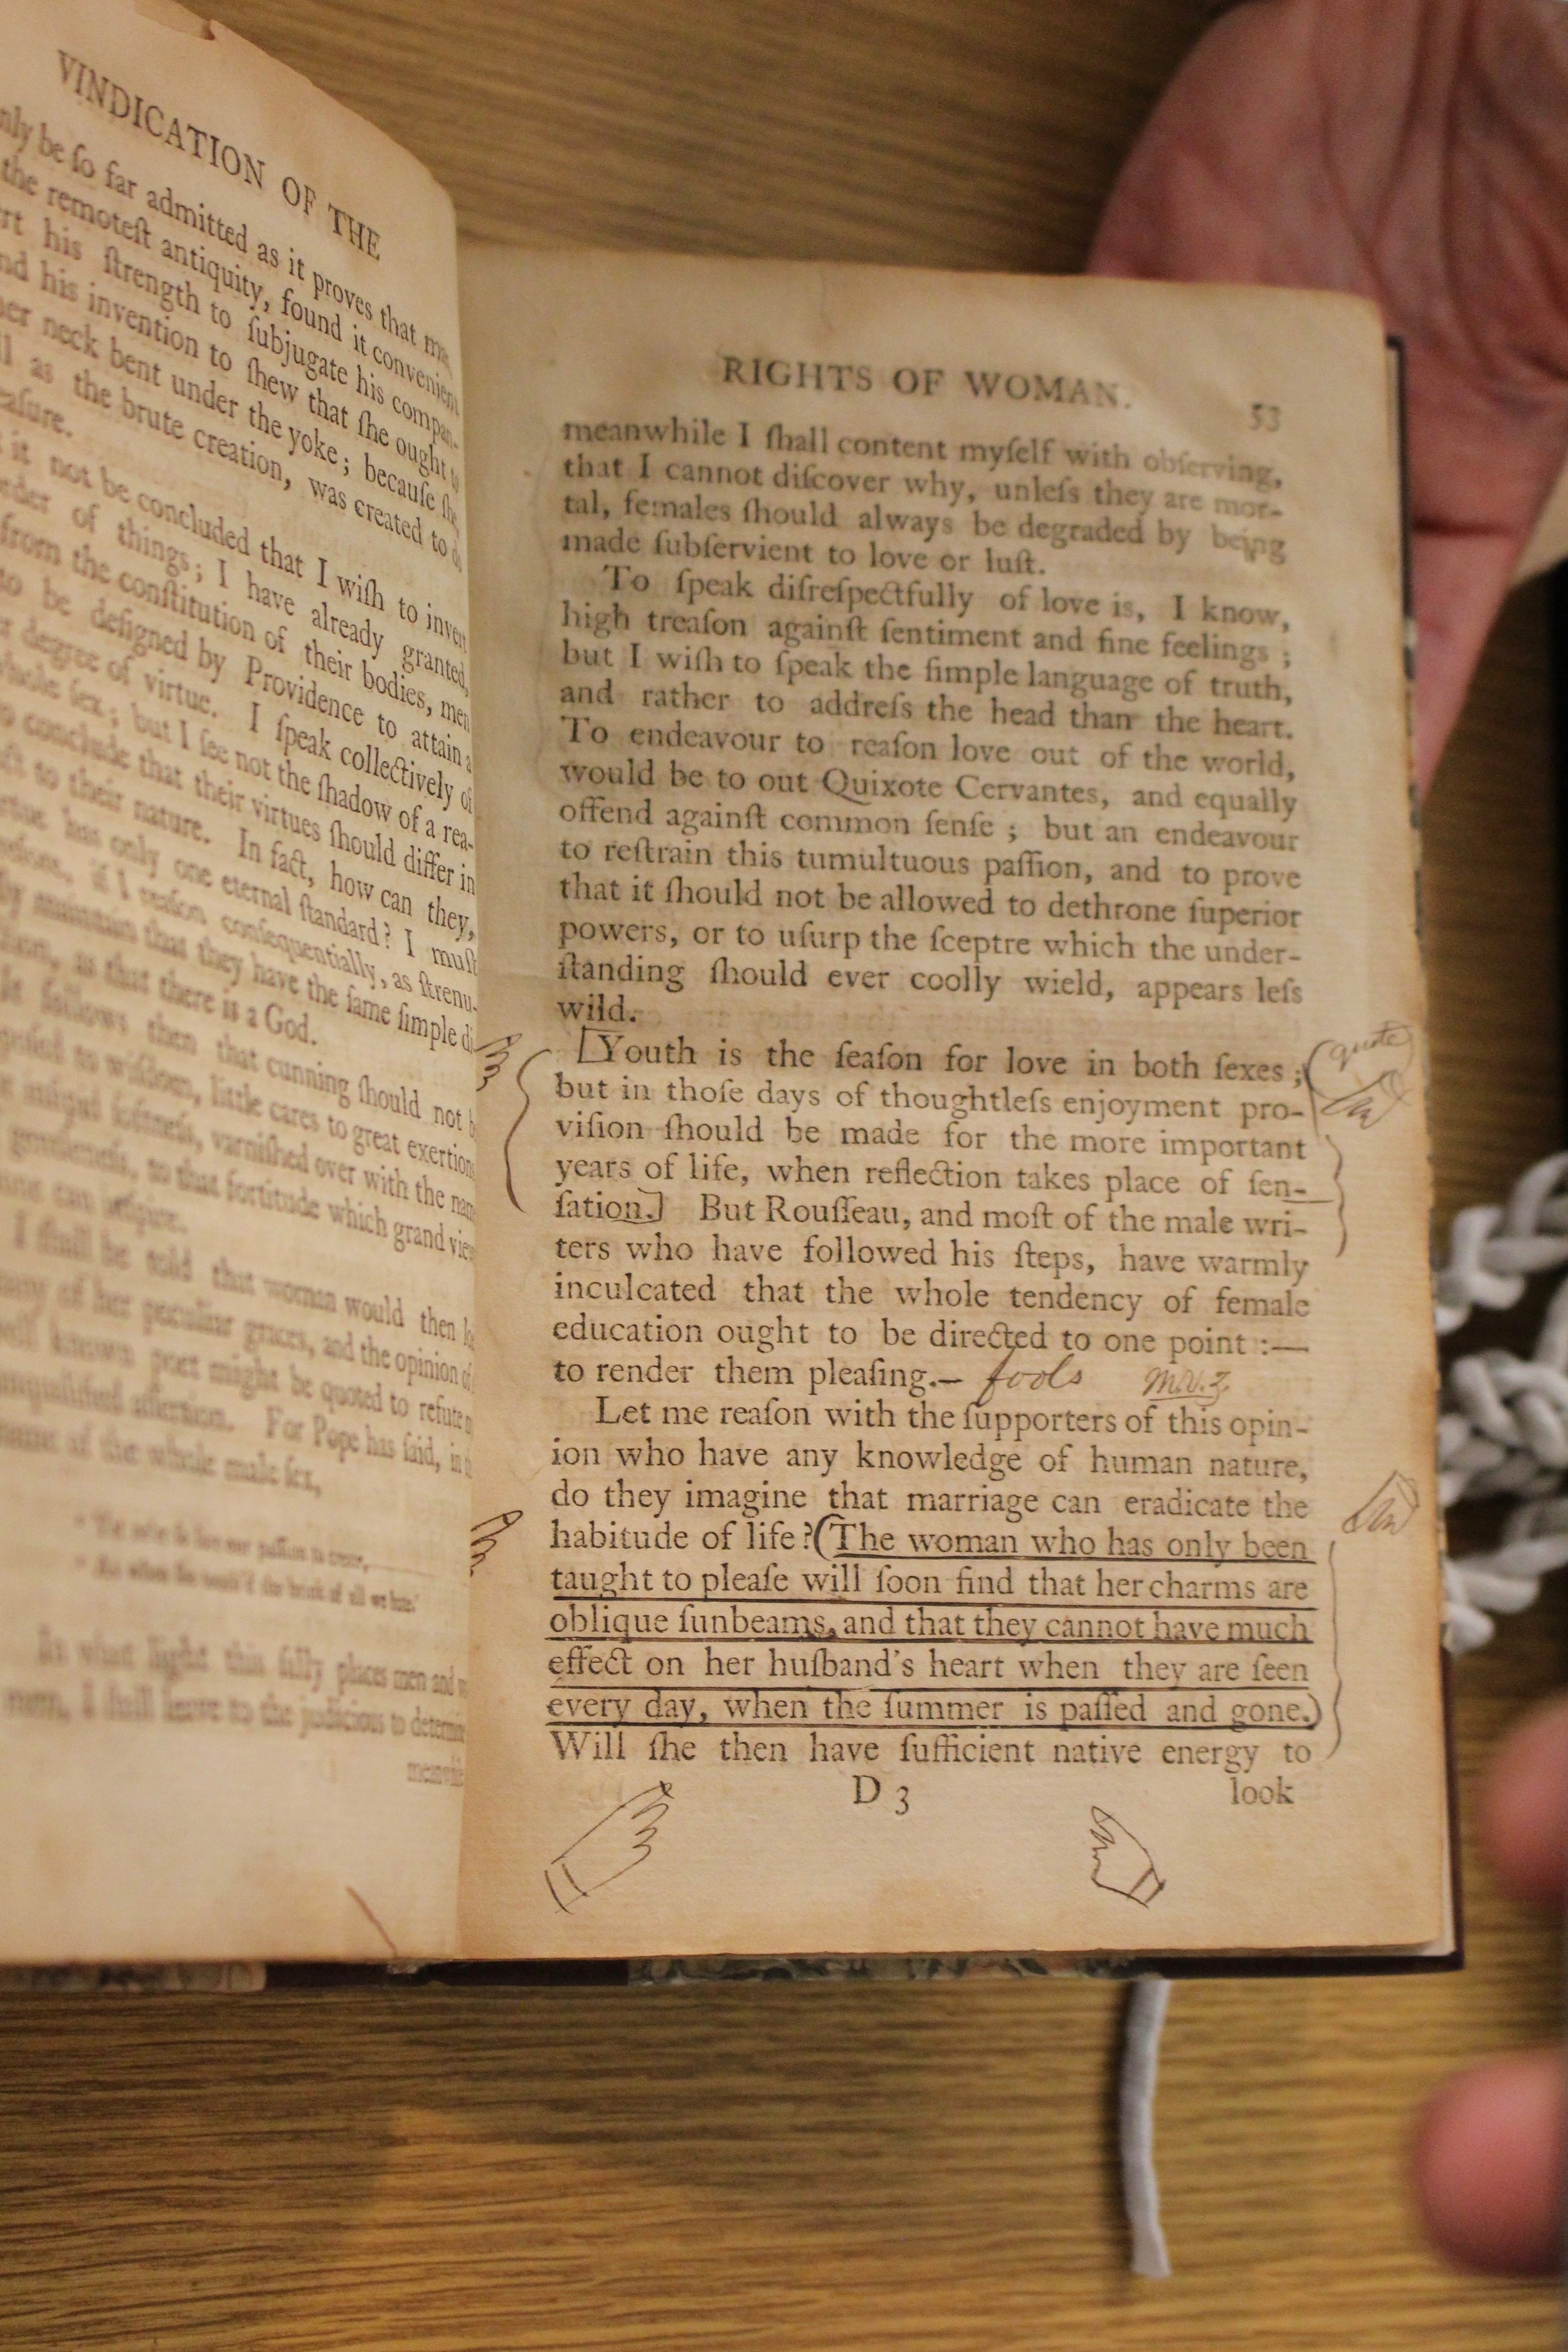 VINDICATION OF THE
be ſo far admitted as it proves that
the remoteſt antiquity, found it convenient
his ſtrength to ſubjugate his compan-
his invention to ſhew that ſhe ought
neck bent under the yoke; becauſe ſhe
as the brute creation, was created to
it not be concluded that I wiſh to invert
order of things; I have already granted,
from the conſtitution of their bodies, men
to be deſigned by Providence to attain a
degree of virtue. I ſpeak collectively of
whole ſex; but I ſee not the ſhadow of a rea-
conclude that their virtues ſhould differ in
to their nature. In fact, how can they,
virtue has only one eternal ſtandard? I muſt
if I reaſon conſequentially, as ſtrenu-
maintain that they have the ſame ſimple
as that there is a God.
It follows then that cunning ſhould not
oppoſed to wiſdom, little cares to great exertions
inſipid ſoftneſs, varniſhed over with the name
gentleneſs, to that fortitude which grand views
can inſpire.
I ſhall be told that woman would then
many of her peculiar graces, and the opinion of
well known poet might be quoted to refute
unqualified aſſertion. For Pope has ſaid, in
name of the whole male ſex,
In what light this ſally places men and
I ſhall leave to the judicious to determine
RIGHTS OF WOMAN. 53
meanwhile I ſhall content myſelf with obſerving,
that I cannot diſcover why, unleſs they are mor-
tal, females ſhould always be degraded by being
made ſubſervient to love or luſt.
To ſpeak diſreſpectfully of love is, I know,
high treaſon againſt ſentiment and fine feelings;
but I wiſh to ſpeak the ſimple language of truth,
and rather to addreſs the head than the heart.
To endeavour to reaſon love out of the world,
would be to out Quixote Cervantes, and equally
offend againſt common ſenſe; but an endeavour
to reſtrain this tumultuous paſſion, and to prove
that it ſhould not be allowed to dethrone ſuperior
powers, or to uſurp the ſceptre which the under-
ſtanding ſhould ever coolly wield, appears leſs
wild.
[Youth is the ſeaſon for love in both ſexes; quote
but in thoſe days of thoughtleſs enjoyment pro-
viſion ſhould be made for the more important
years of life, when reflection takes place of ſen-
ſation.] But Rouſſeau, and moſt of the male wri-
ters who have followed his ſteps, have warmly
inculcated that the whole tendency of female
education ought to be directed to one point:—
to render them pleaſing.— fools
Let me reaſon with the ſupporters of this opin-
ion who have any knowledge of human nature,
do they imagine that marriage can eradicate the
habitude of life? (The woman who has only been
taught to pleaſe will ſoon find that her charms are
oblique ſunbeams, and that they cannot have much
effect on her huſband's heart when they are ſeen
every day, when the ſummer is paſſed and gone.)
Will ſhe then have ſufficient native energy to
D 3 look